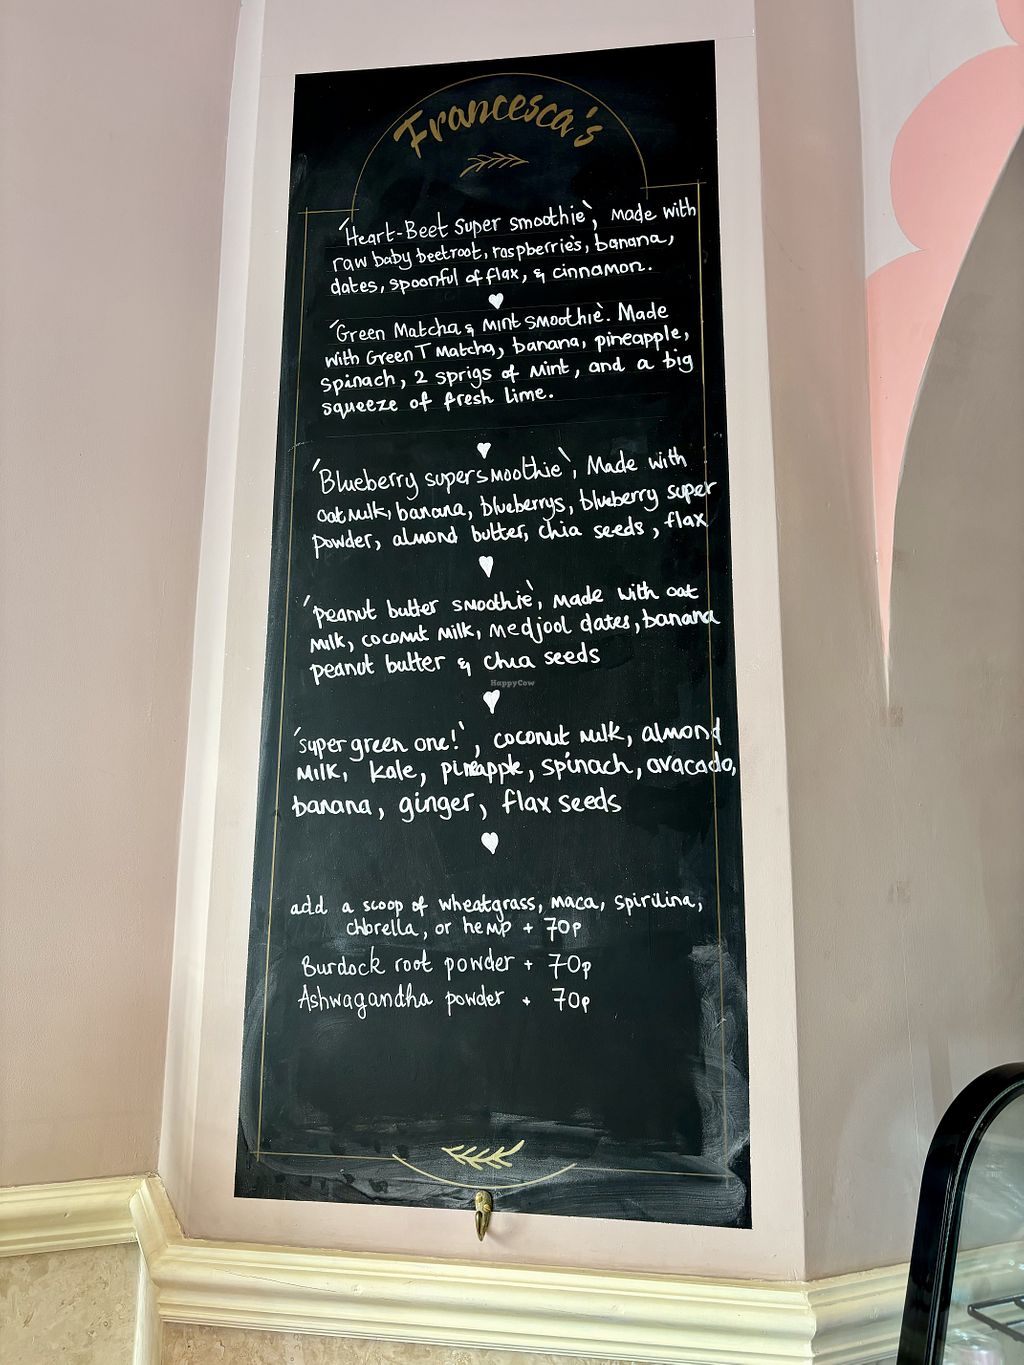 Francesca's
'Heart-Beet Super smoothie', Made with
raw baby beetroot, raspberrie's, banana,
dates, spoonful of flax, & cinnamon.
'Green Matcha & Mint smoothie'. Made
with Green T Matcha, banana, pineapple,
spinach, 2 sprigs of Mint, and a big
squeeze of fresh lime.
'Blueberry supersmoothie', Made with
oat Milk, banana, blueberrys, blueberry super
powder, almond butter, chia seeds, flax
'peanut butter smoothie', Made with oat
Milk, coconut Milk, medjool dates, banana
peanut butter & chia seeds
HappyCow
'super green one!', coconut Milk, almond
Milk, kale, pineapple, spinach, avacado,
banana, ginger, flax seeds
add a scoop of wheatgrass, maca, spirilina,
chlorella, or hemp + 70p
Burdock root powder + 70p
Ashwagandha powder + 70p